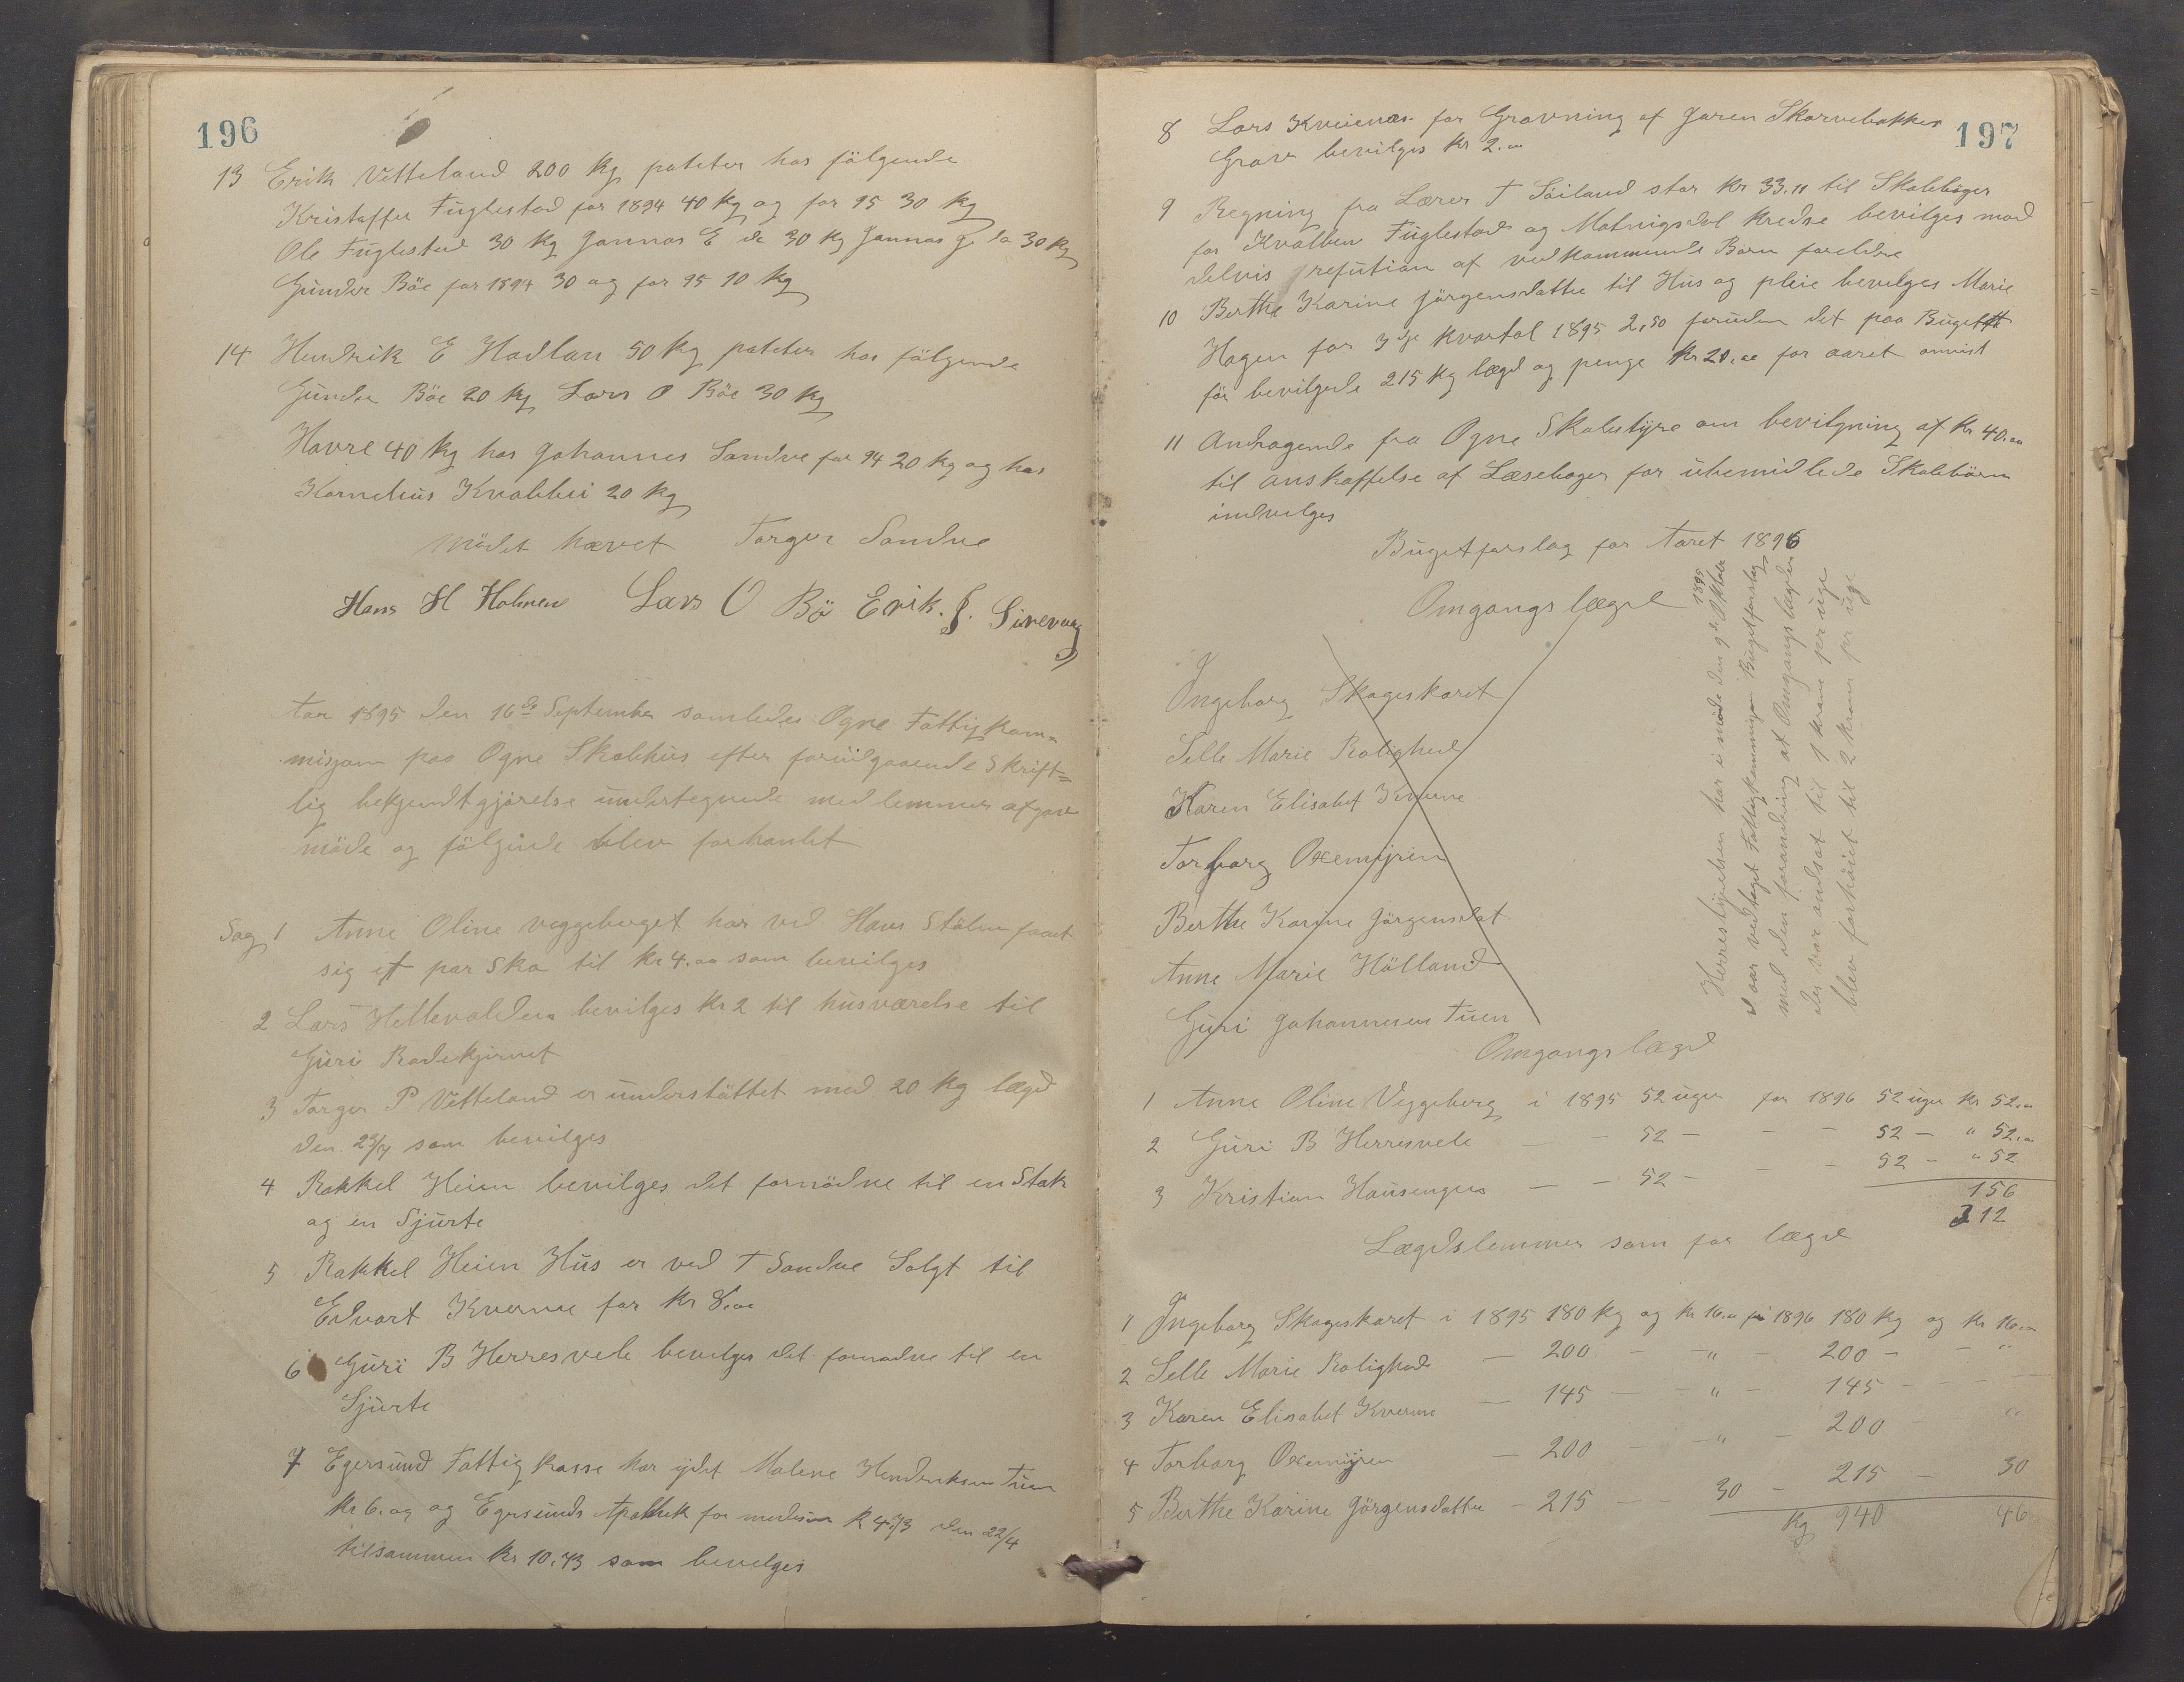 196
13 Erik Vetteland 200 kg poteter hos fölgende
Kristoffer Fuglestad for 1894 40 kg og for 95 30 kg
Ole Fuglestad 30 kg Jonnas E do 30 kg Jonnas G do 30 kg
Gunder Böe for 1894 30 og for 95 10 kg
14 Hendrik E Hadlan 50 kg poteter hos fölgende
Gunder Böe 20 kg Lars O Böe 30 kg
Havre 40 kg hos Johannes Sandve for 94 20 kg og hos
Kornelius Kvalbei 20 kg
Mödet hævet Torger Sandve
Hans H Holmen Lars O Bö Erik. J. Sirevaag
Aar 1895 den 16de September samledes Ogne Fattigkom=
misjom paa Ogne Skolehus efter forudgaaende Skrift=
lig bekjendtgjörelse undertegnede medlemmer afgav
möde og fölgende blev forhanlet
Sag 1 Anne Oline veggeberget har ved Hans Stölen faaet
sig et par Sko til kr 4.00 som bevilges
2 Lars Hellevolden bevilges kr 2 til husværelse til
Guri Rodekjirnet
3 Torger P Vetteland er understöttet med 20 kg lægd
den 23/7 som bevilges
4 Rakkel Heien bevilges det fornödne til en Stak
og en Sjurte
5 Rakkel Heien Hus er ved T Sandve Solgt til
Edvart Kverne for kr 8.00
6 Guri B Herresvele bevelges det fornødne til en
Sjurte
7 Egersund Fattigkasse har ydet Malene Hendriksen Tuen
kr 6.00 og Egersunds Apothek for medisin k 4.73 den 22/4
tilsammen kr 10.73 som bevelges
197
8 Lars Kveienæs for Gravning af Joren Skarvebakkes
Grav bevilges kr 2.00
9 Regning fra Lærer T Söiland stor kr 33.11 til Skolebøger
for Kvalben Fuglestad og Matningsdal kredse bevilges mod
delvis refution af vedkommende Børn foreldre
10 Berthe Karine Jörgensdatter til Hus og pleie bevelges Marie
Hagen for 3dje kvartal 1895 2,50 foruden det paa Bugett
för bevilgede 215 kg lægd og penge kr 20.00 for aaret omist
11 Andragende fra Ogne Skolestyre om bevilgning af kr 40.00
til anskaffelse af Læsebøger for ubemidlede Skolebörn
indvelges
Bugetforslag for Aaret 1896
Omgangslægd
Ingeborg Skageskaret
Selle Marie Rolighed
Karen Elisabet Kverne
Torborg Oxemyren
Berthe Karine Jörgensdat
Anne Marie Hölland
Guri Johannesen Tuen
Herrestyrelsen har i møde den 9de Oktober 1895
d aar vedtaget Fattigkommisjon Bugetforslag
med den forandring at Omgangslægden
der var ansat til 1 krone pr uge
blev forhöiet til 2 kroner pr uge
Omgangs lægd
1 Anne Oline Veggeberg i 1895 52 uger for 1896 52 uger kr 52.00
2 Guri B Herresvele — — 52 — — — 52 — " 52.00
3 Kristian Hausengen — — 52 — — — 52 — " 52
156
312
Lægdslemmer som for lægd
1 Ingeborg Skageskaret i 1895 180 kg og kr 16.00 for 1896 180 kg og kr 16.00
2 Selle Marie Rolighed — 200 — — " — 200 — — "
3 Karen Elisabet Kverne — 145 — — " — 145 — — —
4 Torborg Oxemyren — 200 — — " — 200 "
5 Berthe Karine Jörgensdatter — 215 — — 30 — 215 — 30
kg 940 46